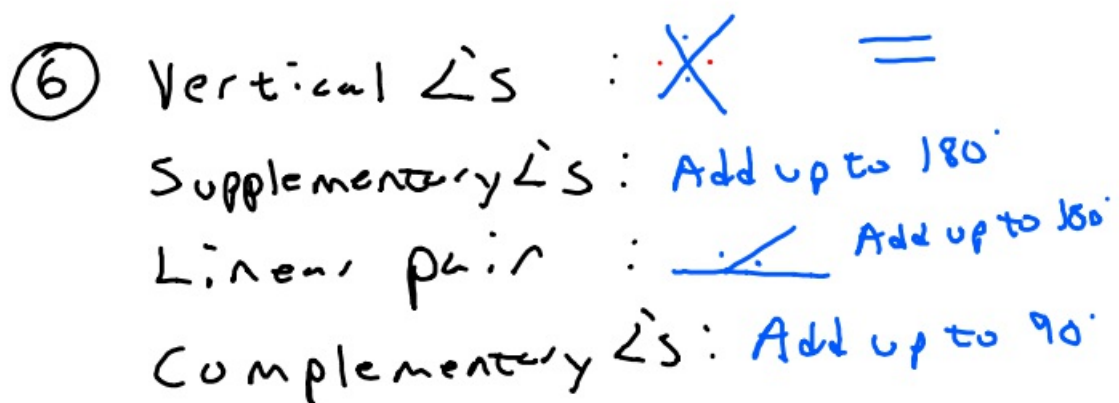 6 Vertical ∠'s : =
Supplementary ∠'s : Add up to 180°
Linear pair : Add up to 180°
Complementary ∠'s : Add up to 90°